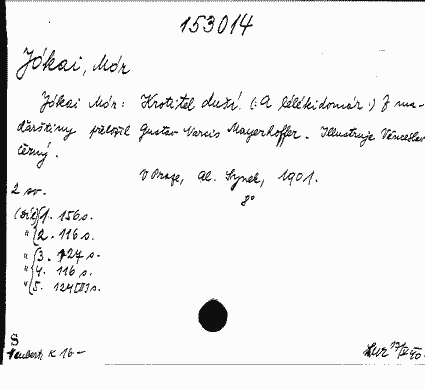 153014
Jókai, Mór
Jókai Mór: Krotitel duší. (: A lélekidomár :) Z ma-
ďarštiny přeložil Gustav Narcis Mayerhoffer. Illustruje Věnceslav
Černý.
V Praze, Al. Hynek, 1901.
8°
2 sv.
(díl) 1. 156 s.
" 2. 116 s.
" 3. 124 s.
" 4. 116 s.
" 5. 124 [II] s.
S
K 16 —